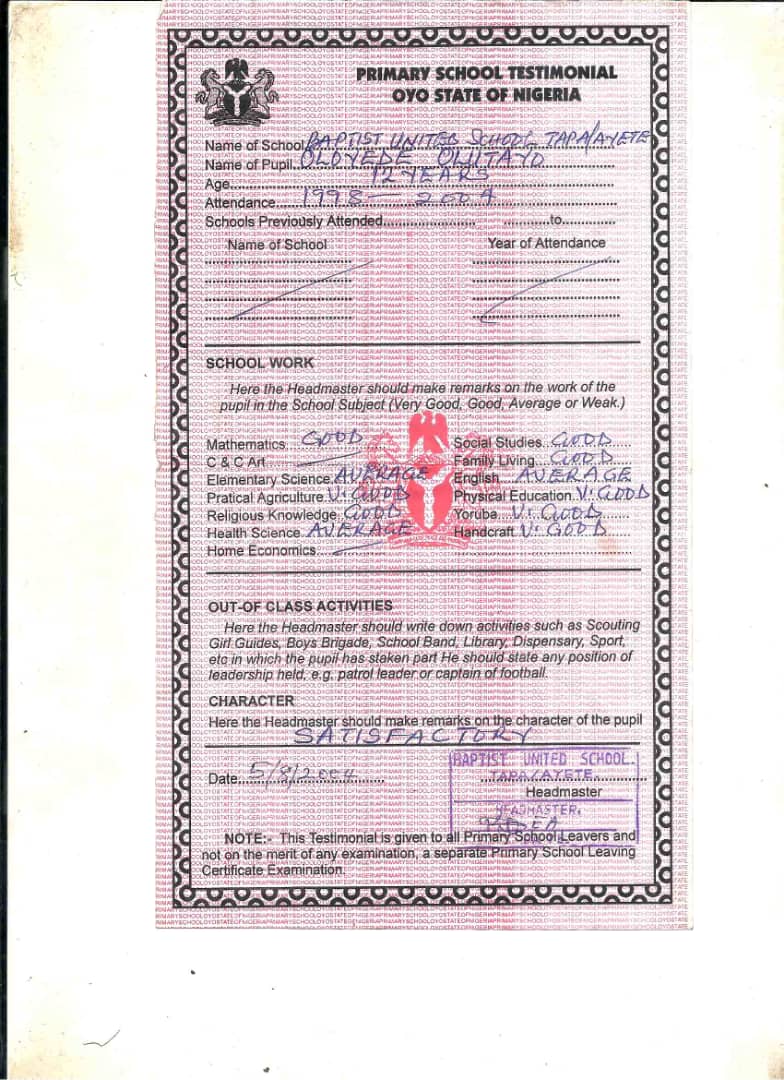 PRIMARY SCHOOL TESTIMONIAL
OYO STATE OF NIGERIA
Name of School BAPTIST UNITED SCHOOL TAPA/AYETE
Name of Pupil OLOYEDE OLUTAYO
Age 12 YEARS
Attendance 1998 — 2004
Schools Previously Attended to
Name of School Year of Attendance
SCHOOL WORK
Here the Headmaster should make remarks on the work of the
pupil in the School Subject (Very Good, Good, Average or Weak.)
Mathematics GOOD Social Studies GOOD
C & C Art Family Living GOOD
Elementary Science AVERAGE English AVERAGE
Pratical Agriculture V. GOOD Physical Education V. GOOD
Religious Knowledge GOOD Yoruba V. GOOD
Health Science AVERAGE Handcraft V. GOOD
Home Economics
OUT-OF CLASS ACTIVITIES
Here the Headmaster should write down activities such as Scouting
Girl Guides, Boys Brigade, School Band, Library, Dispensary, Sport,
etc in which the pupil has staken part He should state any position of
leadership held, e.g. patrol leader or captain of football.
CHARACTER
Here the Headmaster should make remarks on the character of the pupil
SATISFACTORY
BAPTIST UNITED SCHOOL.
Date 5/8/2004 TAPA/AYETE
Headmaster
HEADMASTER.
NOTE:- This Testimonial is given to all Primary School Leavers and
not on the merit of any examination, a separate Primary School Leaving
Certificate Examination.